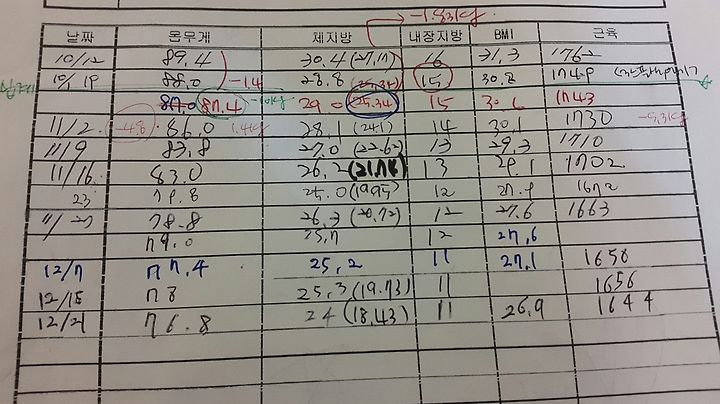 -1.83kg
날짜 몸무게 체지방 내장지방 BMI 근육
10/12 89.4 30.4 (27.17) 16 31.3 1762
10/19 88.0 -1.4 28.8 (25.34) 15 30.8
87.0 87.4 29.0 25.34 15 30.6 1743
11/2 -4.8 86.0 1.4kg 28.1 (24.1) 14 30.1 1730
11/9 83.8 27.0 (22.62) 13 29.3 1710
11/16 83.0 26.2 13 29.1 1702
23 79.8 25.0 (19.95) 12 1672
78.8 26.3 (20.72) 12 27.6 1663
79.0 25.7 12 27.6
12/7 77.4 25.2 11 27.1 1658
12/15 78 25.3 (19.73) 11 1656
12/21 76.8 24 (18.43) 11 26.9 1644